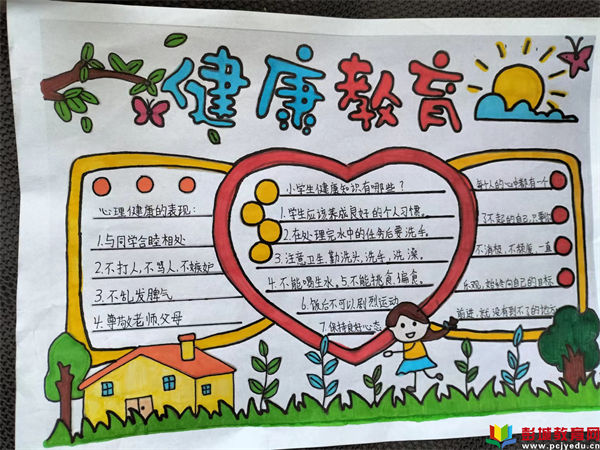 健康教育
心理健康的表现:
1.与同学合睦相处
2.不打人,不骂人,不嫉妒
3.不乱发脾气
4.尊敬老师,父母
小学生健康知识有哪些?
1.学生应该养成良好的个人习惯。
2.在处理完水中的任务后要洗手。
3.注意卫生,勤洗头,洗手,洗澡。
4.不能喝生水。5.不能挑食,偏食。
6.饭后不可以剧烈运动
7.保持良好心态
每个人的心中都有一个
了不起的自己,只要你
不消极,不颓废,一直
乐观,始终向自己的目标
前进,就没有到不了的地方
彭城教育网
www.pcjyedu.cn